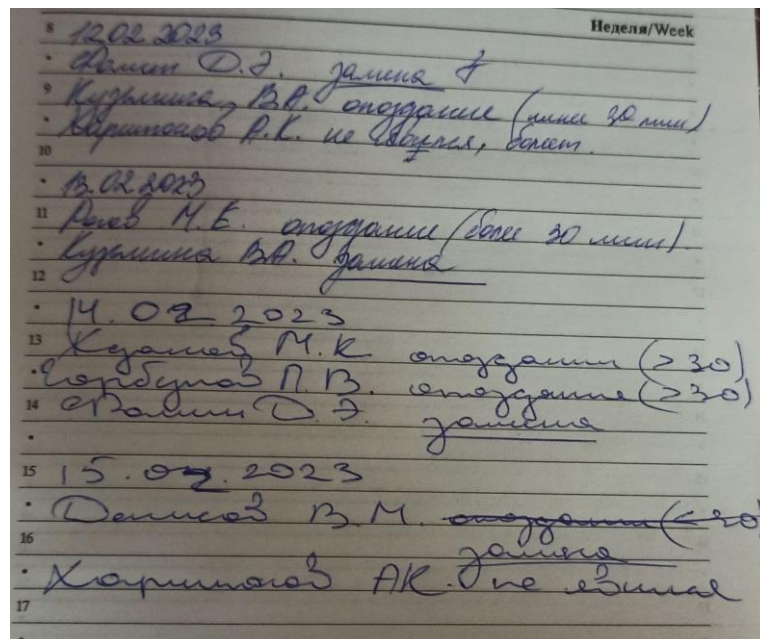 Неделя/Week
8 12.02.2023
Фомин Д.Э. замена
9 Кузьмина В.А. опоздание (менее 30 мин)
Харитонов А.К. не явился, болеет.
10
13.02.2023
11 Рогов М.Е. опоздание (более 30 мин).
Кузьмина В.А. замена
12
14.02.2023
13 М.К. опоздании (>30)
Горбунов П.В. опоздание (>30)
14 Фомин Д.Э. замена
15 15.02.2023
Денисов В.М. опоздании (<30)
16 замена
Харитонов А.К. не явился
17